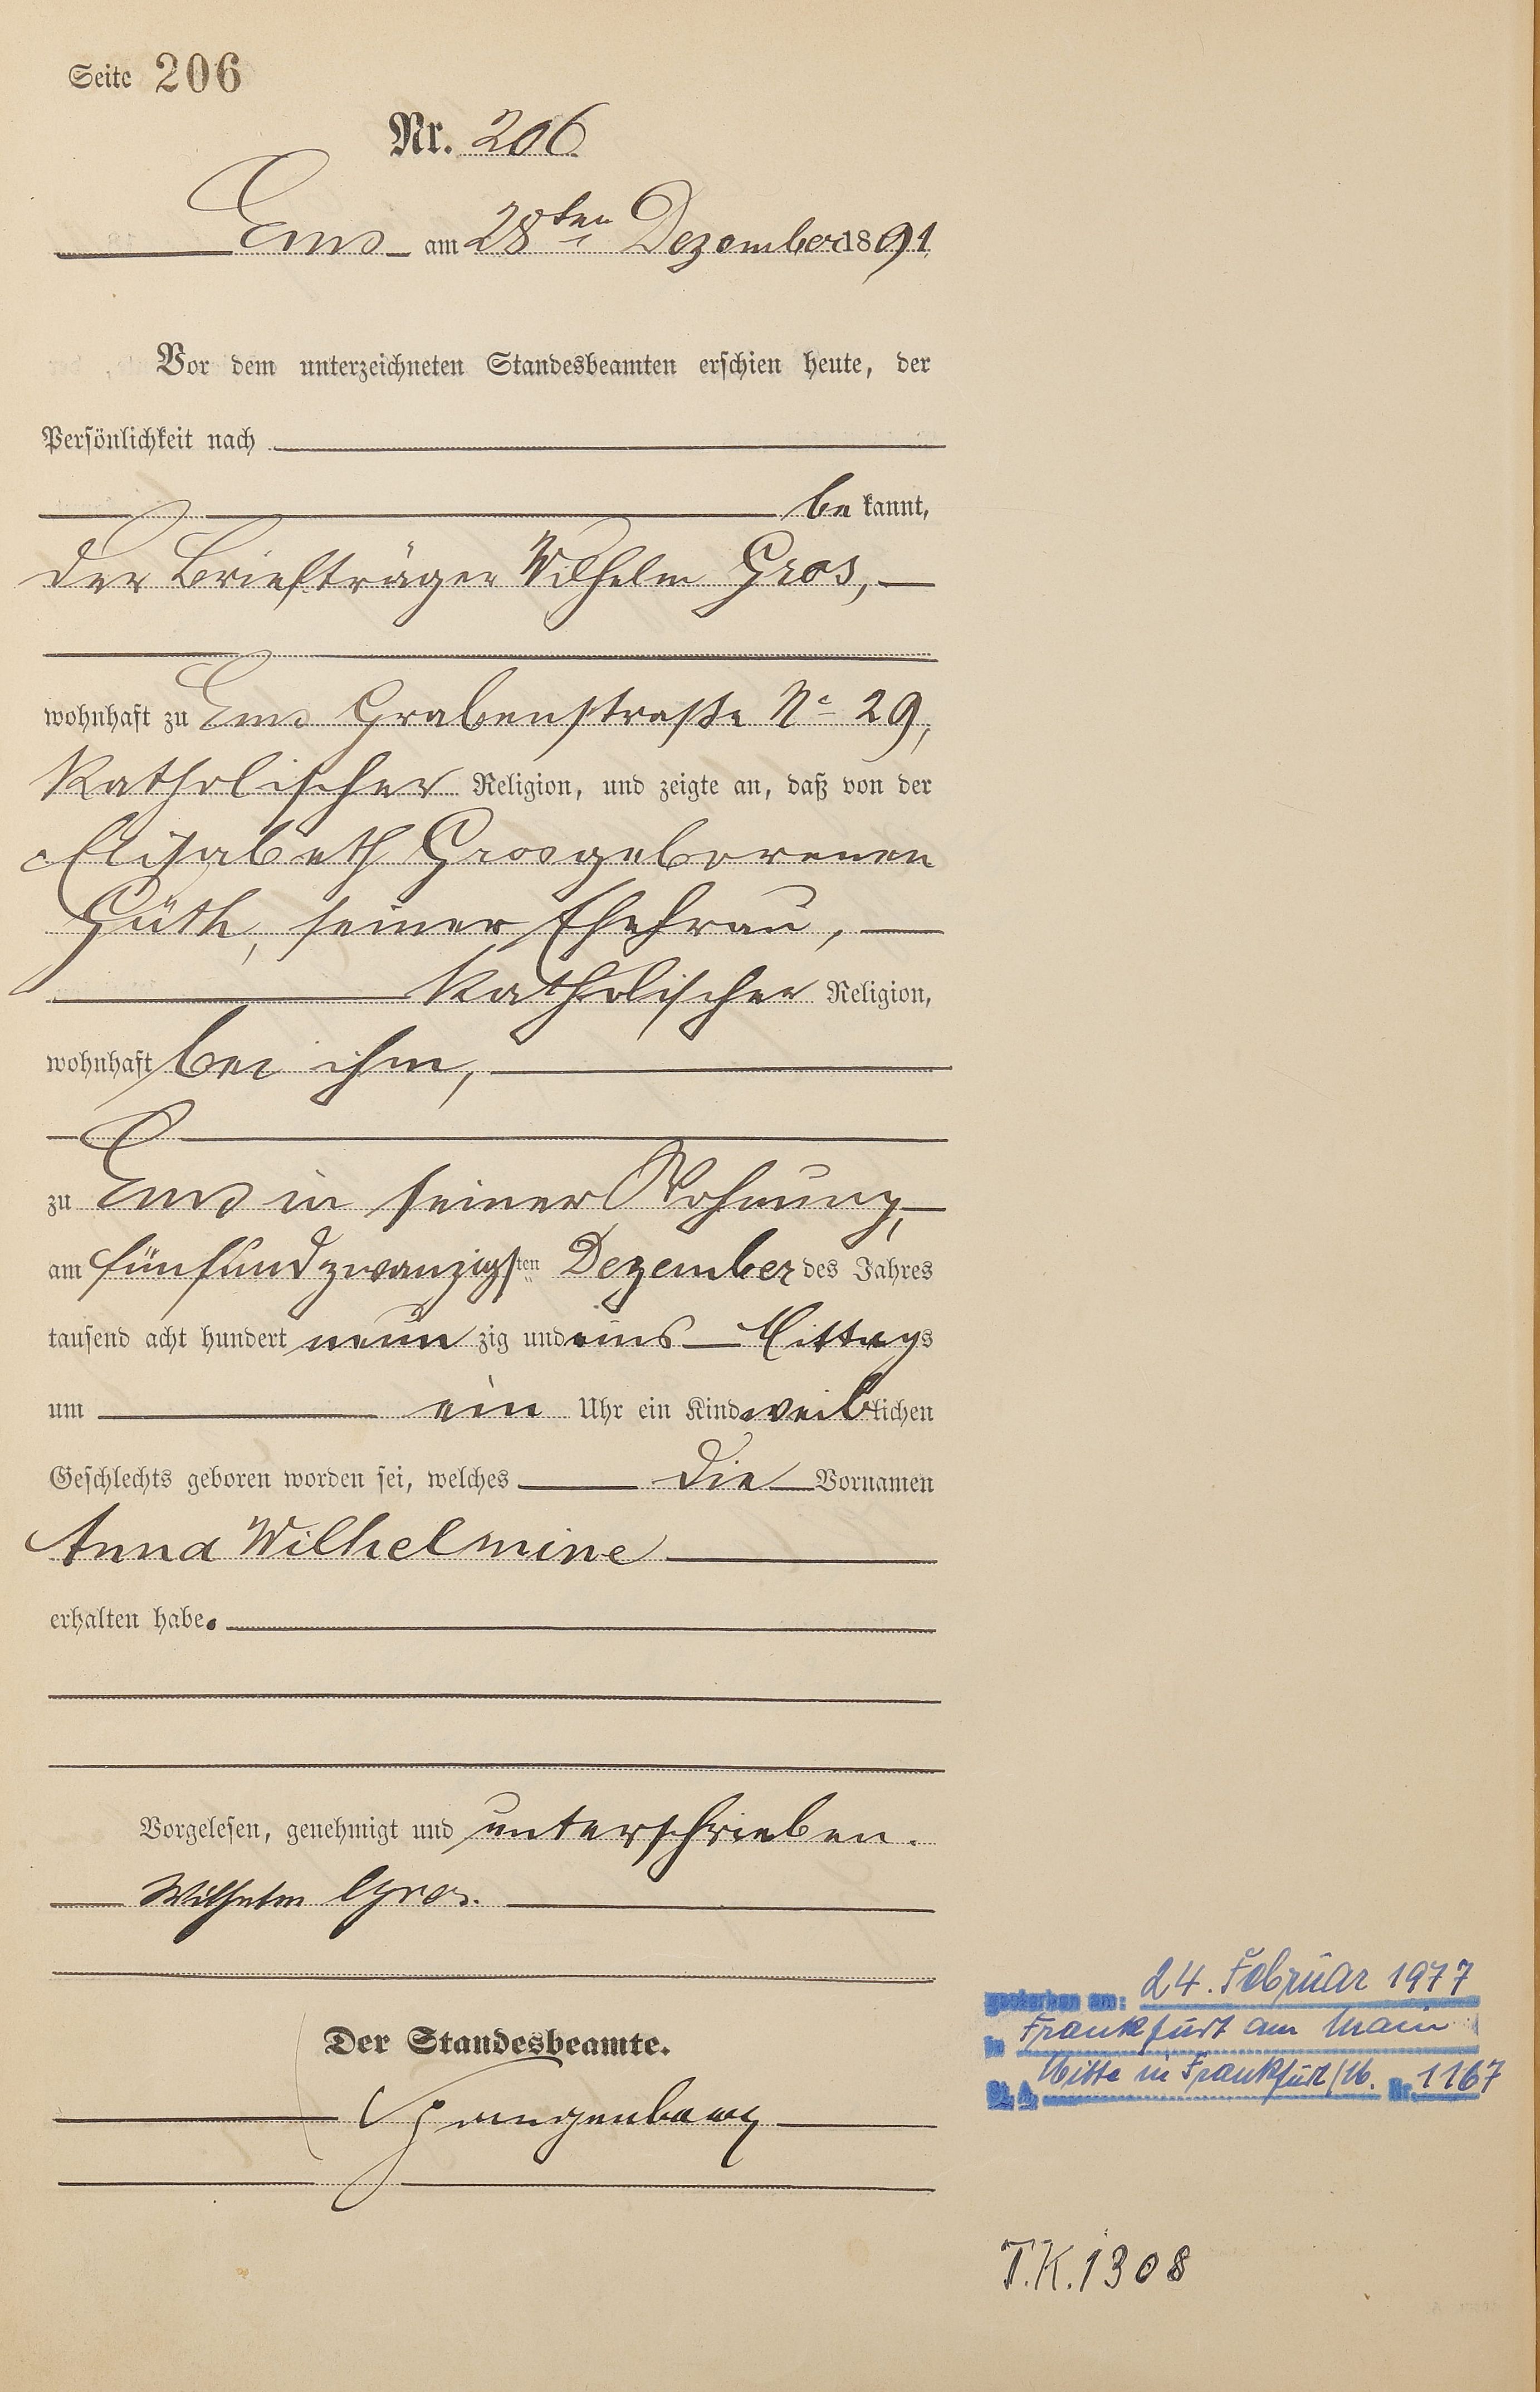 Seite 206
Nr. 206
Ems am 28ten Dezember 1891
Vor dem unterzeichneten Standesbeamten erschien heute, der
Persönlichkeit nach
bekannt,
der Briefträger Wilhelm Gros,
wohnhaft zu Ems Grabenstraße No 29,
katholischer Religion, und zeigte an, daß von der
Elisabeth Gros geborenen
Güth, seiner Ehefrau,
katholischer Religion,
wohnhaft bei ihm,
zu Ems in seiner Wohnung,
am fünfundzwanzigsten Dezember des Jahres
tausend acht hundert neunzig und eins Mittags
um ein Uhr ein Kind weiblichen
Geschlechts geboren worden sei, welches die Vornamen
Anna Wilhelmine
erhalten habe.
Vorgelesen, genehmigt und unterschrieben.
Wilhelm Gros.
Der Standesbeamte.
gestorben am: 24. Februar 1977
in Frankfurt am Main
St. A. Mitte in Frankfurt/M. Nr. 1167
T.K. 1308